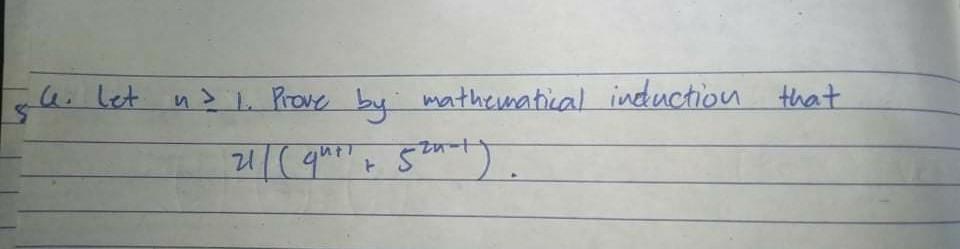 5
4. Let n ≥ 1. Prove by mathematical induction that
21 | (4ⁿ⁺¹ + 5²ⁿ⁻¹).